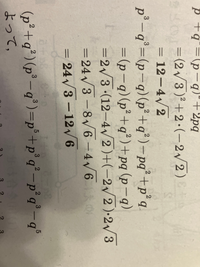 p² + q² = (p−q)² + 2pq
= (2√3)² + 2·(−2√2)
= 12−4√2
p³−q³ = (p−q)(p²+q²)−pq²+p²q
= (p−q)(p²+q²)+pq(p−q)
= 2√3·(12−4√2)+(−2√2)·2√3
= 24√3−8√6−4√6
= 24√3−12√6
よって,
(p²+q²)(p³−q³)=p⁵+p³q²−p²q³−q⁵